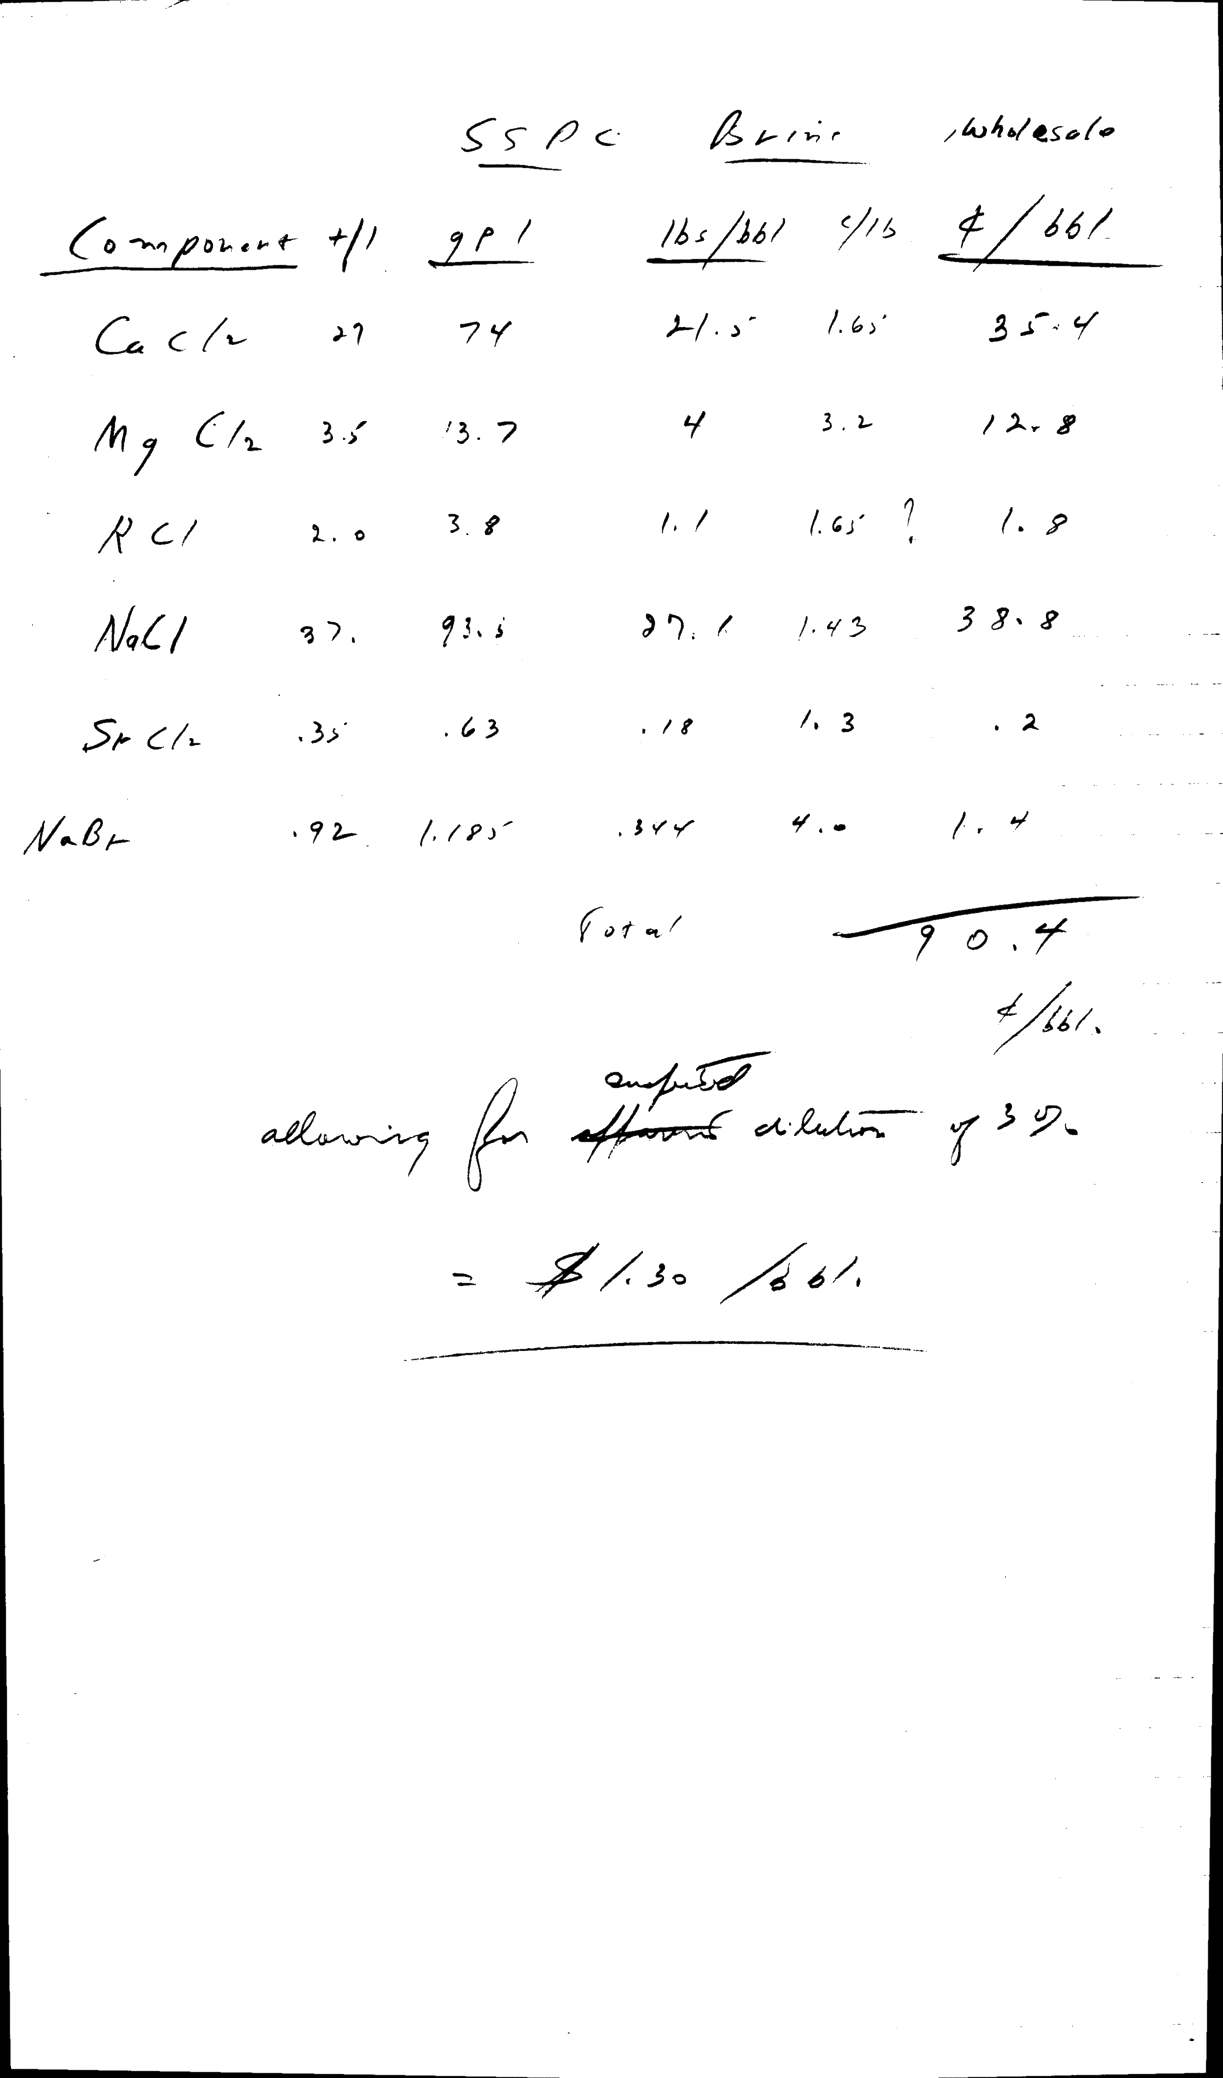 SSPC Brine wholesale
Component t/l gpl lbs/bbl ¢/lb ¢/bbl.
CaCl2 27 74 21.5 1.65 35.4
MgCl2 3.5 13.7 4 3.2 12.8
KCl 2.0 3.8 1.1 1.65 ? 1.8
NaCl 37. 93.5 27.1 1.43 38.8
SrCl2 .35 .63 .18 1.3 .2
NaBr .92 1.185 .344 4.0 1.4
Total 90.4
¢/bbl.
allowing for dilution of
= $1.30 /bbl.